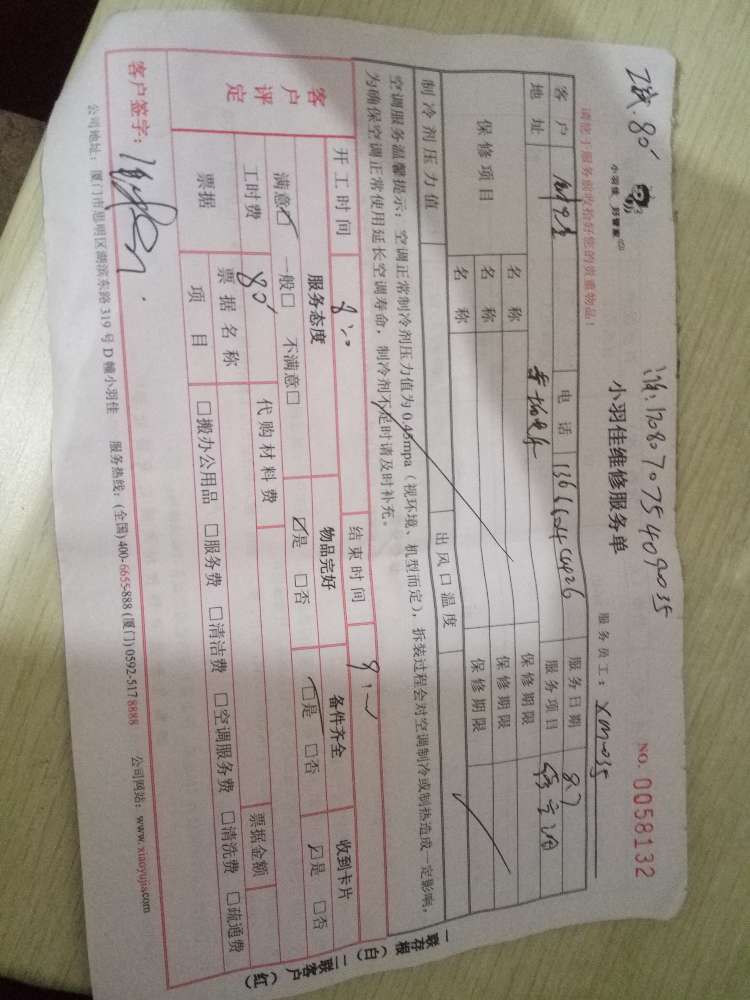 小羽佳 好管家
请您于服务前收拾好您的贵重物品!
小羽佳维修服务单
NO. 0058132
服务员工: XM035
客户 电话 服务日期 8.7
地址 服务项目
保修项目 名称 保修期限
名称 保修期限
名称 保修期限
制冷剂压力值 出风口温度
空调服务温馨提示:空调正常制冷剂压力值为0.45mpa(视环境、机型而定),拆装过程会对空调制冷或制热造成一定影响,
为确保空调正常使用延长空调寿命,制冷剂不足时请及时补充。
开工时间 结束时间
客户评定 服务态度 物品完好 备件齐全 收到卡片
满意☑ 一般□ 不满意□ ☑是 □否 ☑是 □否 ☑是 □否
工时费 80 代购材料费 票据金额
票据 票据名称
项目 □搬办公用品 □服务费 □清洁费 □空调服务费 □清洗费 □疏通费
客户签字:
公司地址:厦门市思明区湖滨东路319号D幢小羽佳 服务热线:(全国)400-6655-888 (厦门)0592-5178888 公司网站:www.xiaoyujia.com
一联存根(白) 二联客户(红)